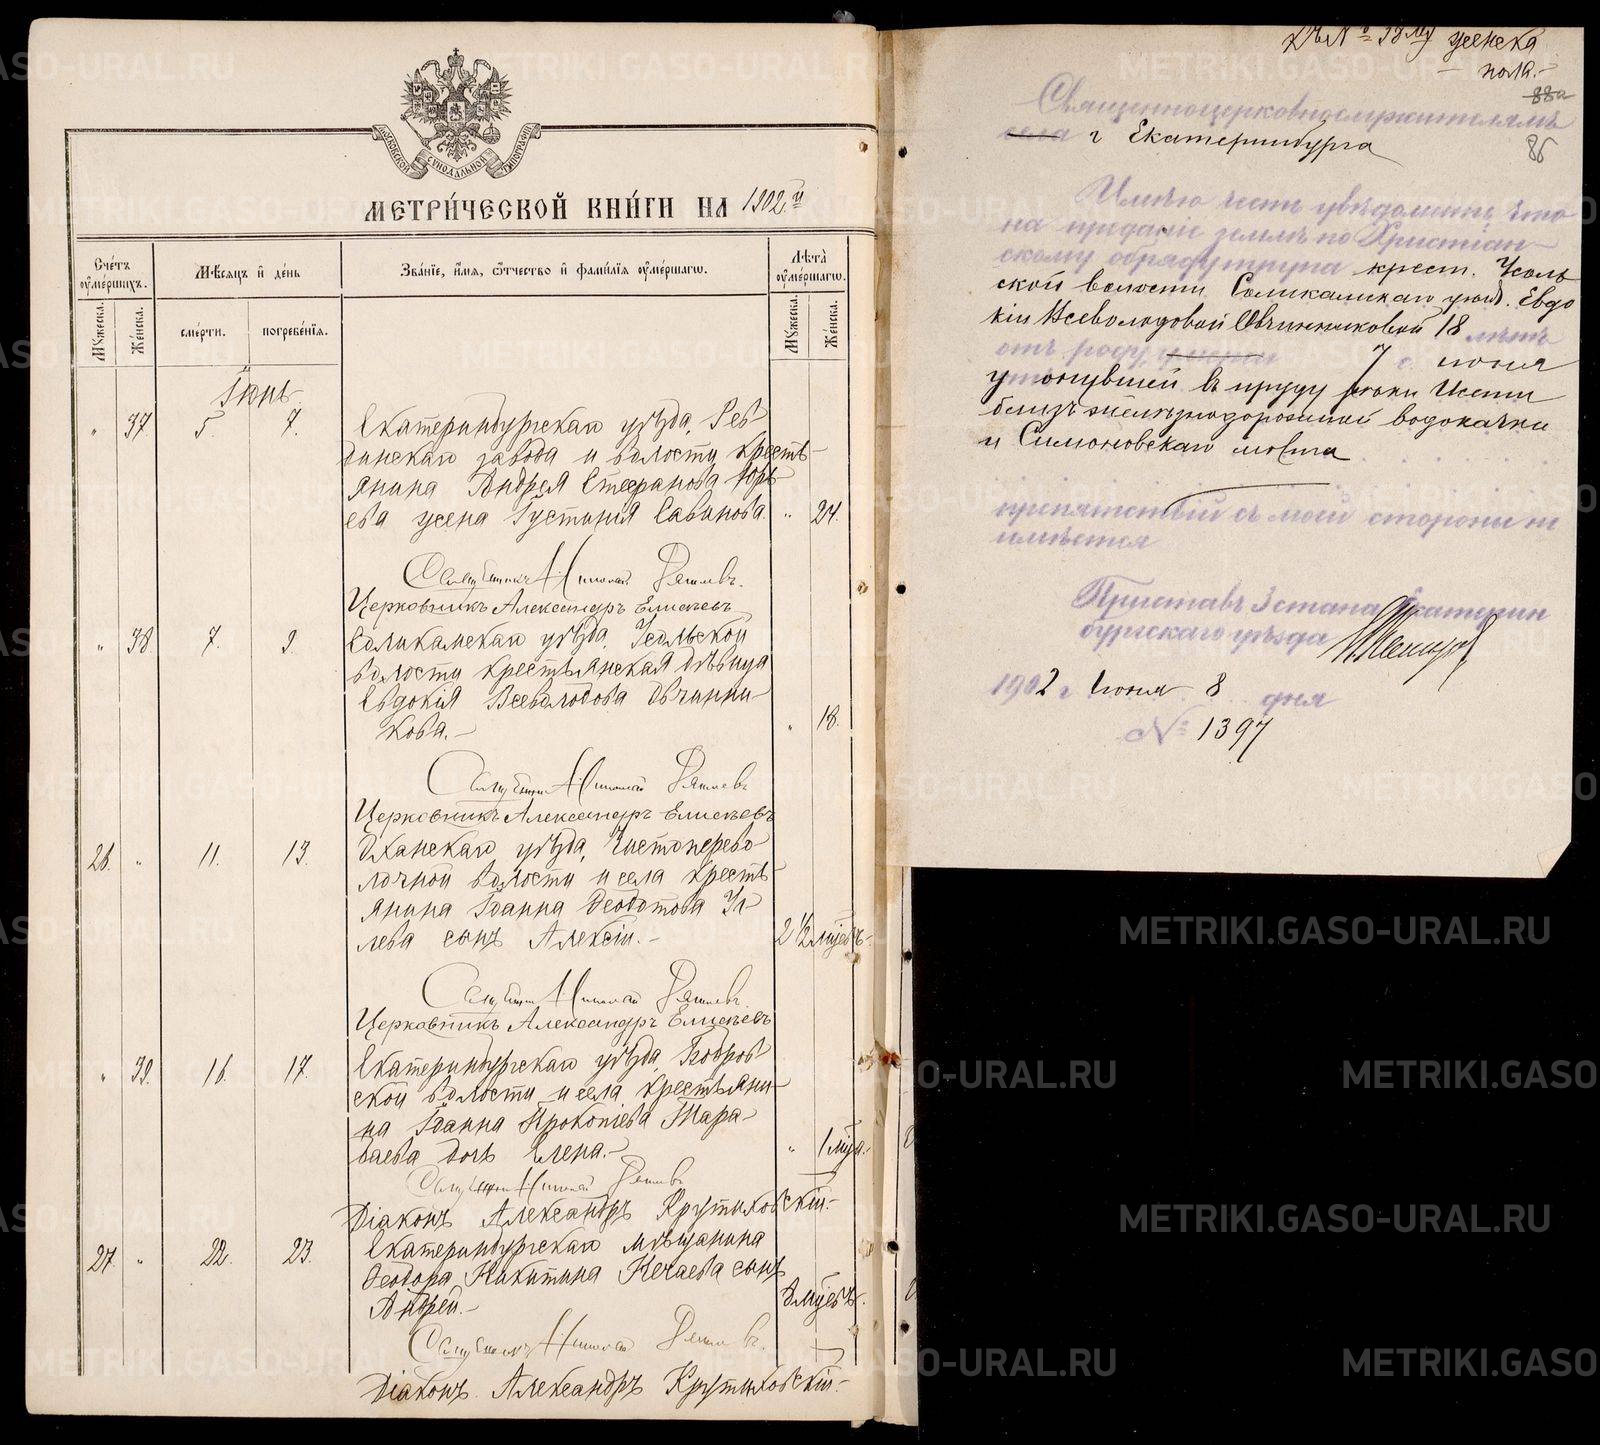 МОСКОВСКОЙ СѴНОДАЛЬНОЙ ТИПОГРАФІИ
МЕТРИ́ЧЕСКОЙ КНИ́ГИ НА 1902.й
Сче́тъ ᲂу҆ме́ршихъ.
Мѣ́сяцъ и҆ де́нь
Зва́нїе, и҆́мя, ѻ҆́тчество и҆ фами́лїя ᲂу҆ме́ршагѡ.
Лѣ́та ᲂу҆ме́ршагѡ.
Мꙋ́жеска.
Же́нска.
сме́рти.
погребе́нїѧ.
Мꙋ́жеска.
Же́нска.
Іюнь
" 37 5. 7. Екатеринбургскаго уѣзда, Рев
динскаго завода и волости кресть-
янина Андрея Стефанова Юрь
ева жена Іустинія Савинова. " 24.
Священникъ Николай
Церковникъ Александръ Елисѣевъ
" 38 7. 9. Соликамскаго уѣзда, Усольской
волости крестьянская дѣвица
Евдокія Всеволодова Овчинни-
кова.- " 18.
Священникъ Николай
Церковникъ Александръ Елисѣевъ
26. " 11. 13. Оханскаго уѣзда, Чистоперево
лочной волости и села кресть-
янина Іоанна Ѳеодотова
лева сынъ Алексій.- 2½ мѣсяц.-
Священникъ Николай
Церковникъ Александръ Елисѣевъ
" 39. 16. 17. Екатеринбургскаго уѣзда,
ской волости и села крестьяни-
на Іоанна Прокопіева
ваева дочь Елена.- " 1 мѣс.-
Священникъ Николай
Діаконъ Александръ Крутиховскій.-
27. " 22. 23. Екатеринбургскаго мѣщанина
Ѳеодора Никитина Нечаева сынъ
Андрей.- 8 мѣсяц.
Священникъ Николай
Діаконъ Александръ Крутиховскій.-
Къ № 38му женска
пола.-
88а
Священноцерковнослужителямъ
села г Екатеринбурга
86
Имѣю честь увѣдомить, что
на преданіе землѣ по Христіан-
скому обряду трупа крест. Усоль
ской волости Соликамскаго уѣзд. Евдо
кіи Всеволодовой Овчинниковой 18 лѣтъ
отъ роду, умерш 7 с. іюня
утонувшей въ пруду рѣки Исети
близъ желѣзнодорожной водокачки
и Симоновскаго моста
препятствій съ моей стороны не
имѣется
Приставъ 3 стана Екатерин
бургскаго уѣзда
1902 г Іюня 8 дня
№ 1397
METRIKI.GASO-URAL.RU